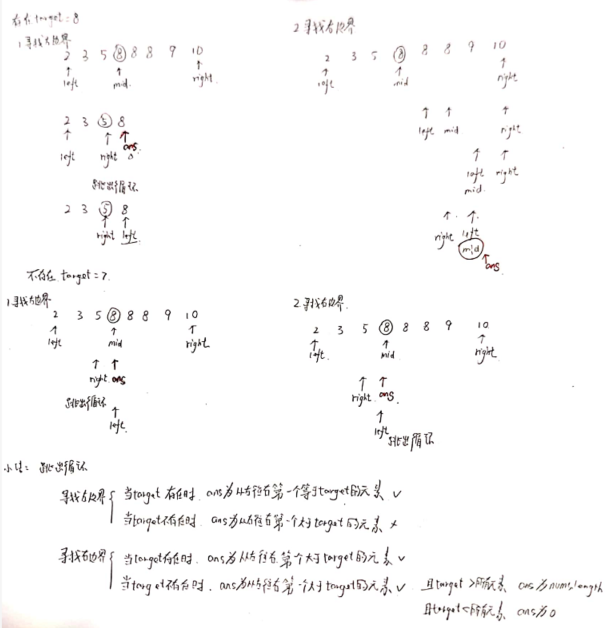 存在 target = 8
1 寻找左边界
2 3 5 8 8 8 9 10
left mid right
2 3 5 8
left right ans
跳出循环
2 3 5 8
right left
2 寻找右边界
2 3 5 8 8 8 9 10
left mid right
left mid right
left right
mid
right left
mid
ans
不存在 target = 7
1 寻找左边界
2 3 5 8 8 8 9 10
left mid right
right ans
跳出循环
left
2. 寻找右边界
2 3 5 8 8 8 9 10
left mid right
right ans
left 跳出循环
小结: 跳出循环
寻找左边界 { 当target 存在时. ans为从左往右第一个等于target的元素 ✓
当target不存在时. ans为从左往右第一个大于target的元素 ×
寻找右边界 { 当target存在时. ans为从左往右第一个大于target的元素 ✓
当target不存在时. ans为从左往右第一个大于target的元素 ✓ 且target >所有元素 ans为nums.length
且target<所有元素 ans为0